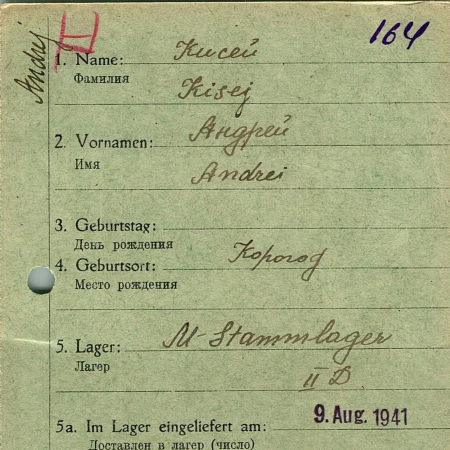 Andrej
I
164
1. Name: Кисей
Фамилия
Kisej
2. Vornamen: Андрей
Имя
Andrei
3. Geburtstag:
День рождения
4. Geburtsort: Корогод
Место рождения
5. Lager: M-Stammlager
Лагер
II D
9. Aug. 1941
5a. Im Lager eingeliefert am:
Доставлен в лагер (число)